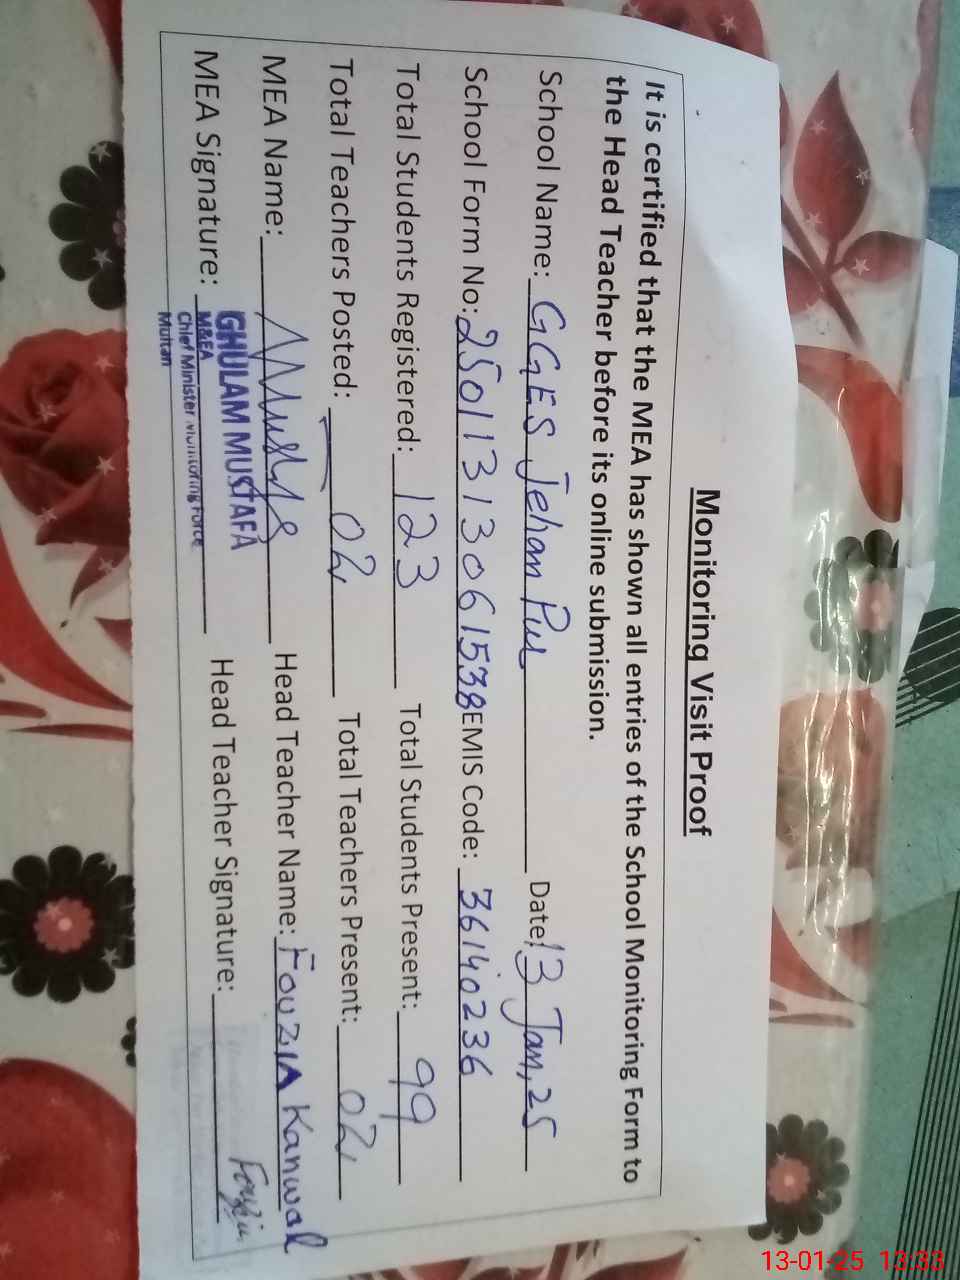 Monitoring Visit Proof
It is certified that the MEA has shown all entries of the School Monitoring Form to
the Head Teacher before its online submission.
School Name: GGES Jehan Pur Date: 13 Jan, 25
School Form No: 25011313061538 EMIS Code: 36140236
Total Students Registered: 123 Total Students Present: 99
Total Teachers Posted: 02 Total Teachers Present: 02
MEA Name: Head Teacher Name: Fouzia Kanwal
MEA Signature: Head Teacher Signature: Fouzia
GHULAM MUSTAFA
M&EA
Chief Minister Monitoring Force
Multan
13-01-25 13:33